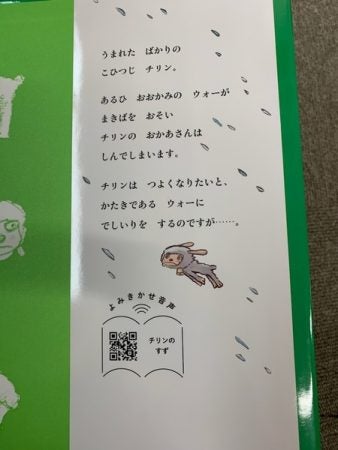 うまれた　ばかりの
こひつじ　チリン。
あるひ　おおかみの　ウォーが
まきばを　おそい
チリンの　おかあさんは
しんでしまいます。
チリンは　つよくなりたいと、
かたきである　ウォーに
でしいりを　するのですが……。
よみきかせ音声
チリンの
すず